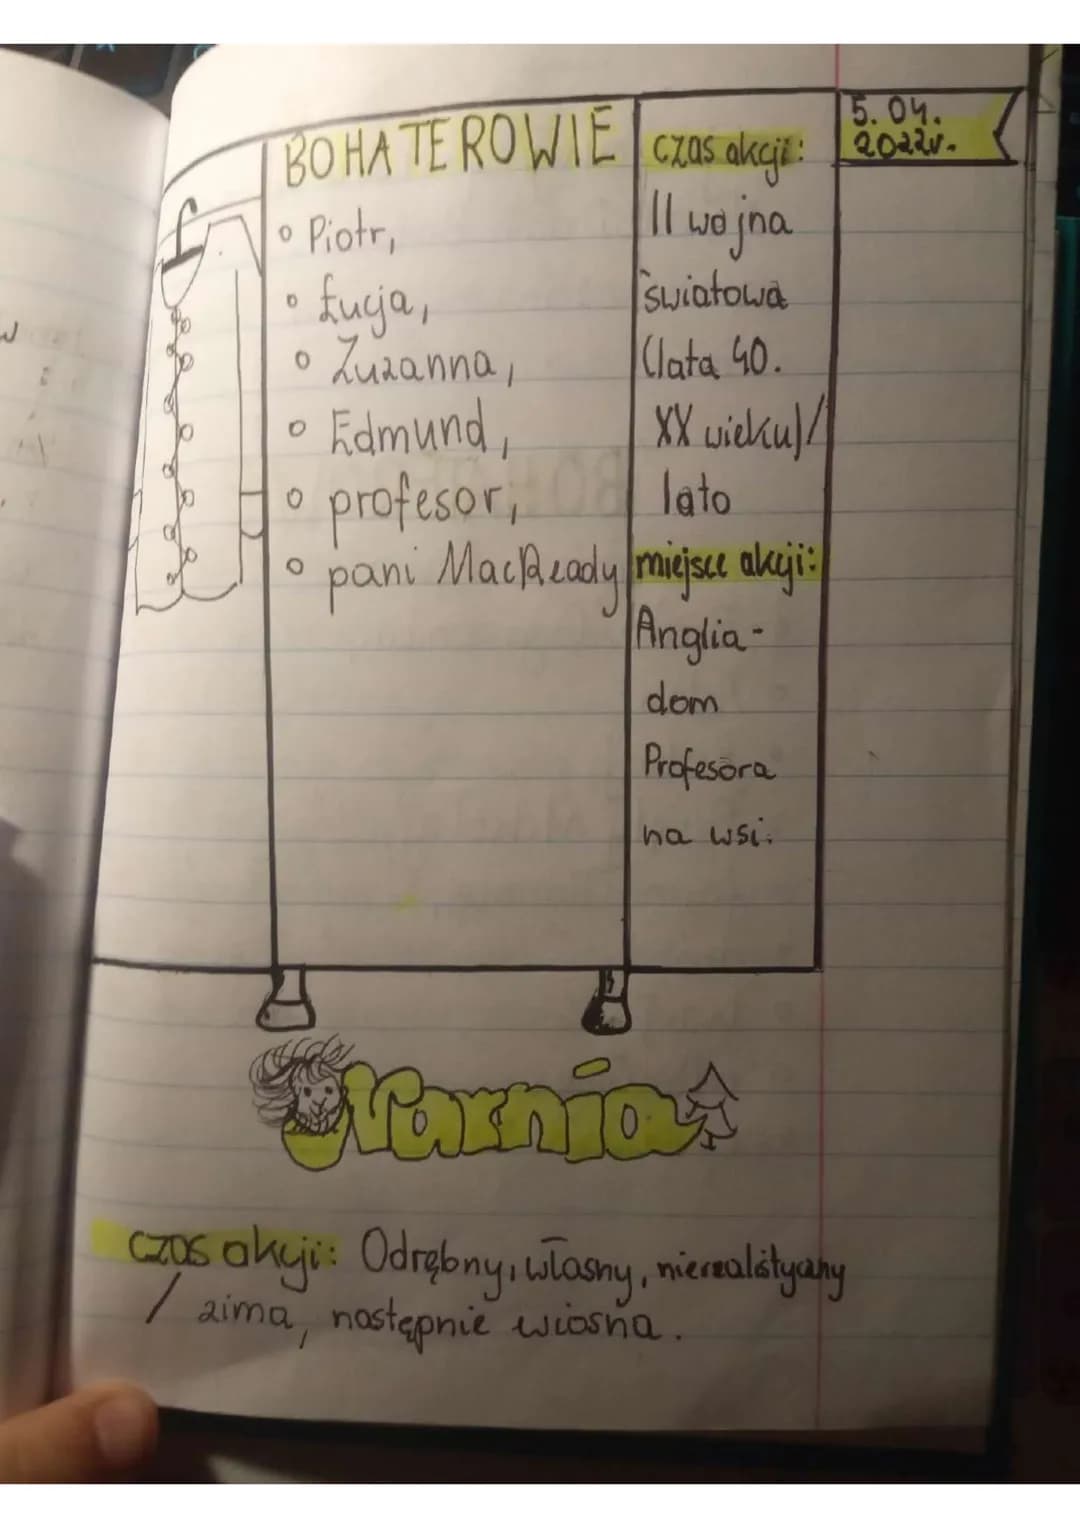 BOHATEROWIE
o Piotr,
o Łucja,
o Zuzanna,
o Edmund,
o profesor,
o pani MacReady
czas akcji:
II wojna
światowa
(lata 40.
XX wieku)/
lato
miejsce akcji:
Anglia-
dom
Profesora
na wsi.
5.04.
2022r.
Narnia
czas akcji: Odrębny, własny, nierealistyczny
/ zima, następnie wiosna.